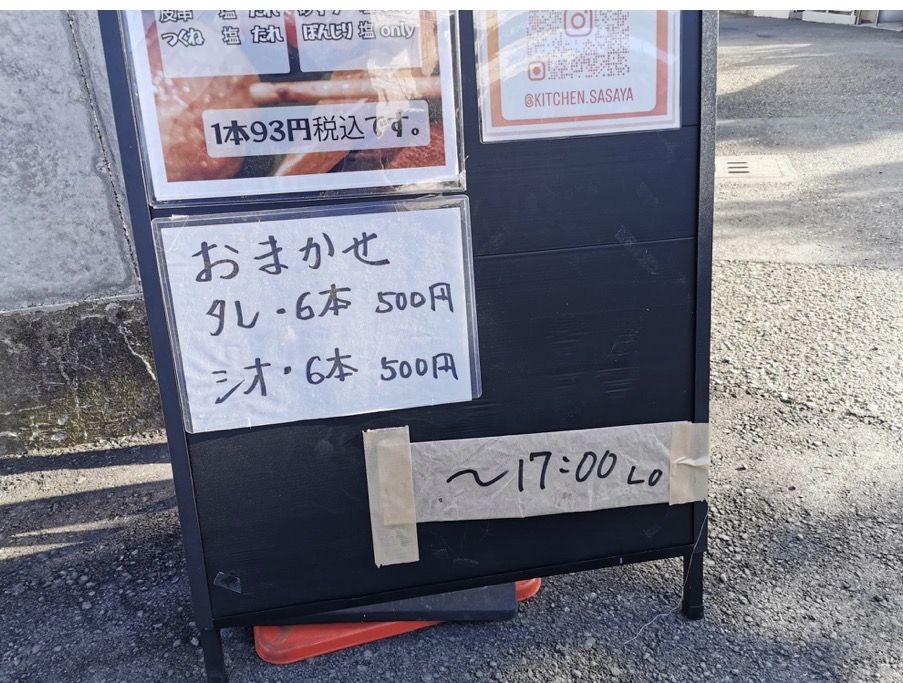 皮串 塩 たれ
つくね 塩 たれ
ぼんじり 塩 only
1本93円税込です。
@KITCHEN.SASAYA
おまかせ
タレ・6本 500円
シオ・6本 500円
～17:00 LO